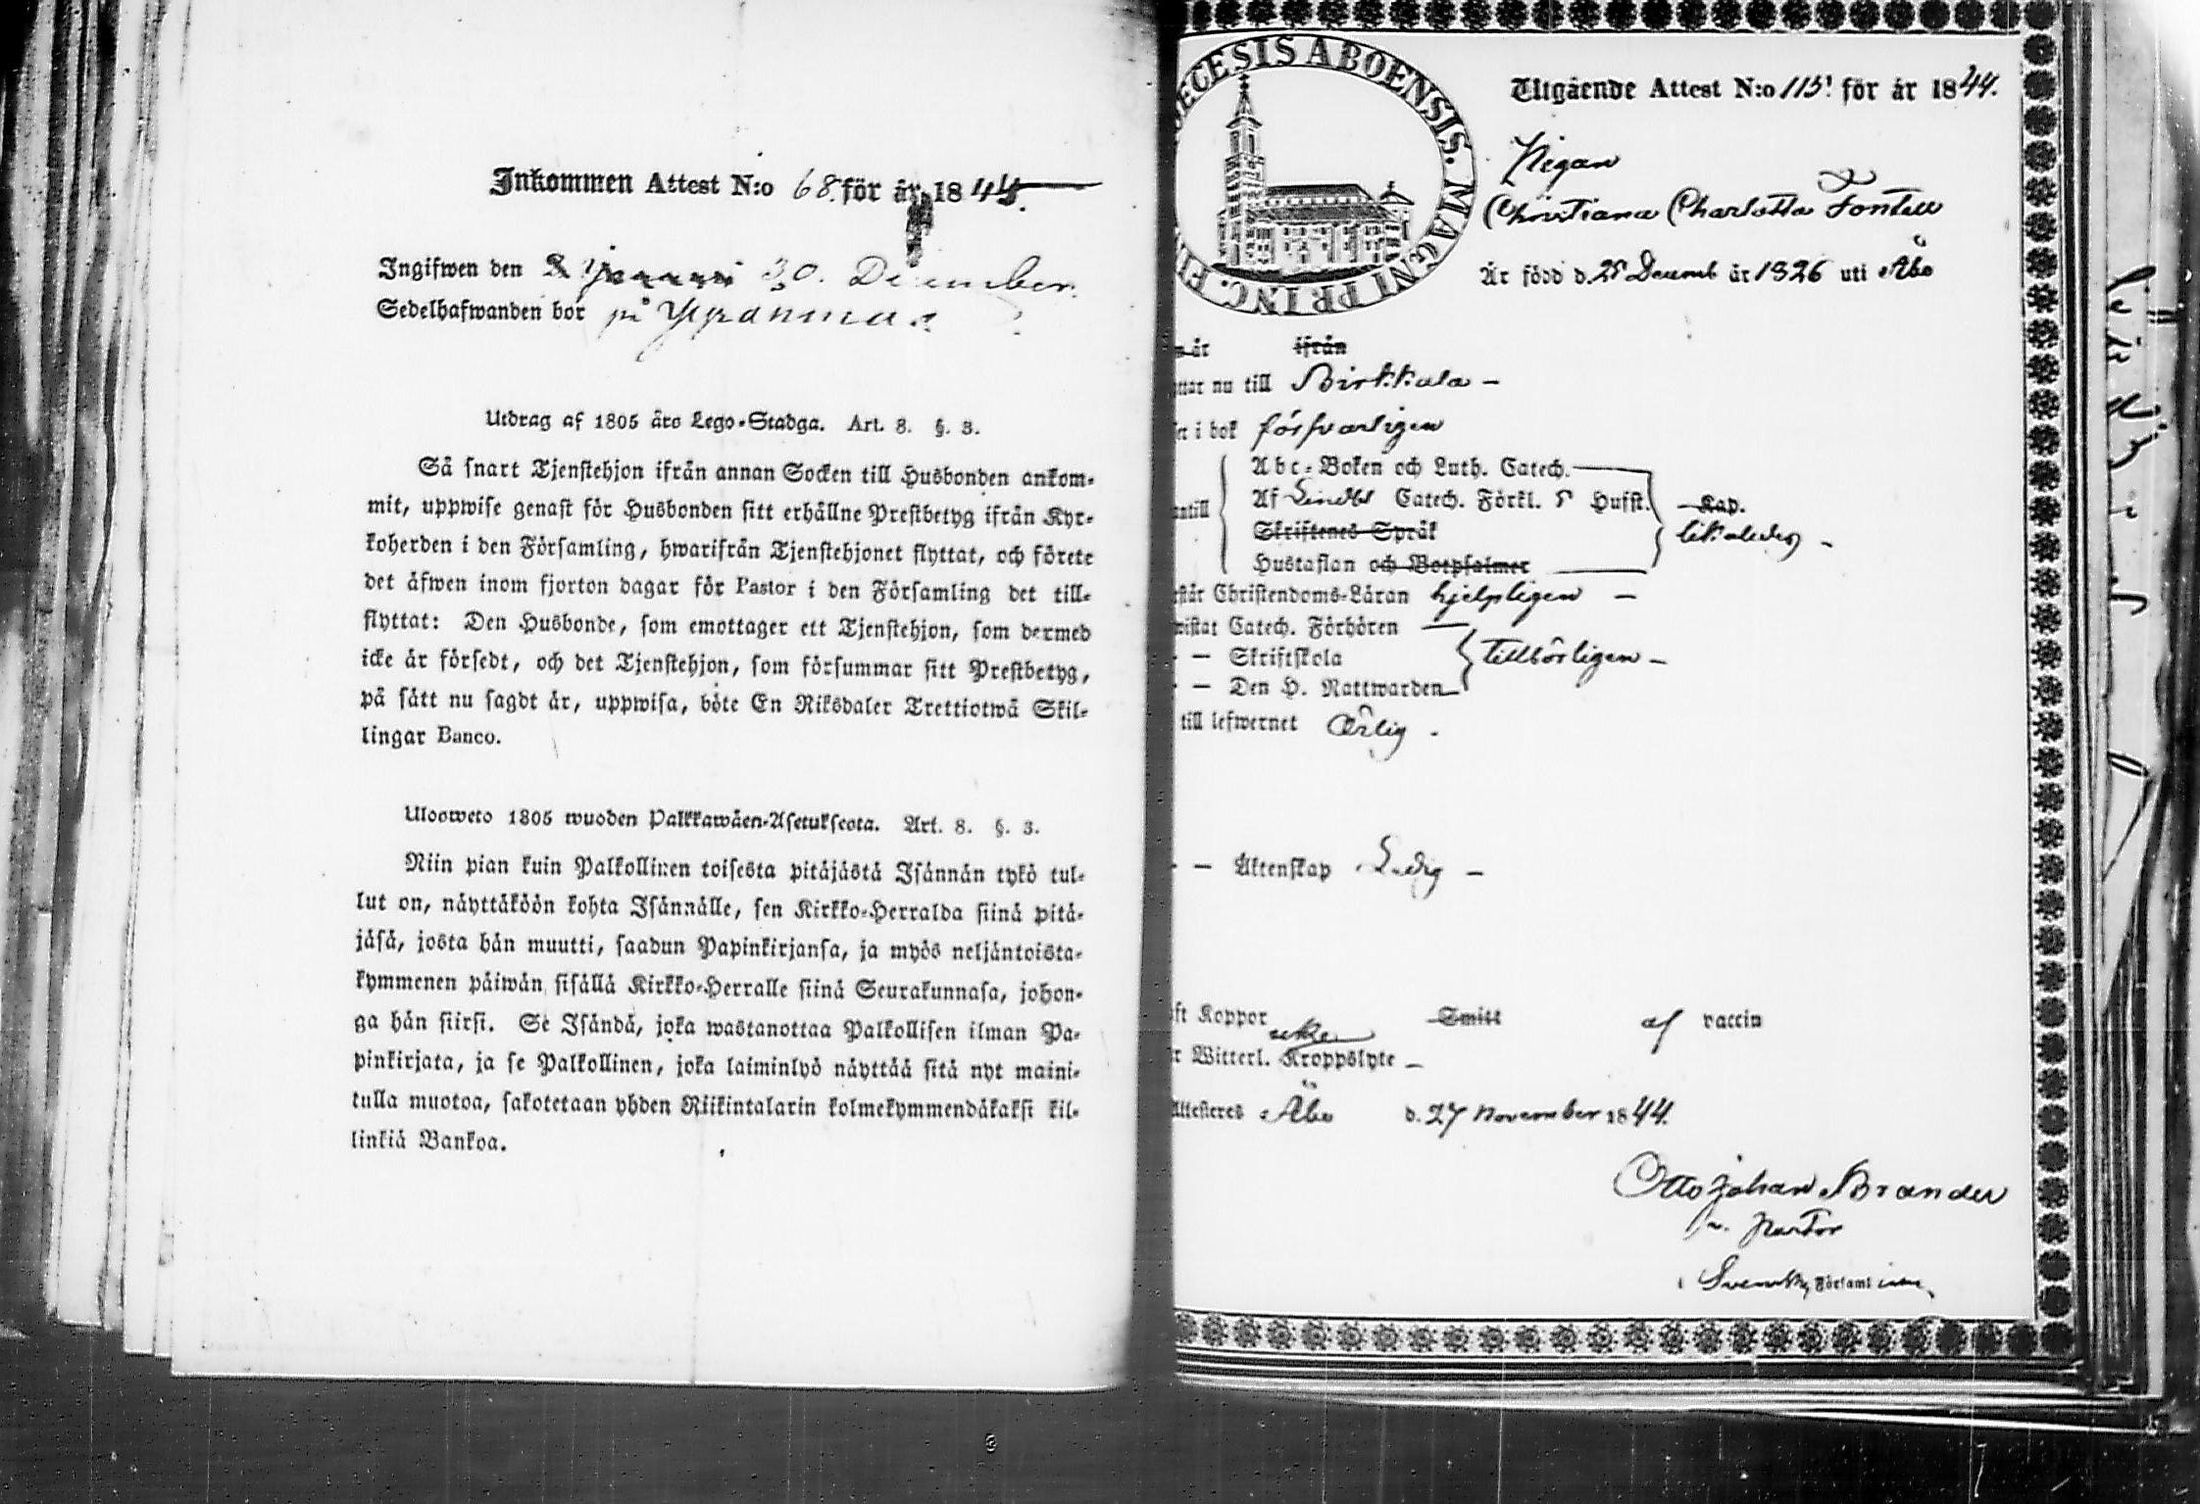 Inkommen Attest N:o 68. för år 1844.
Ingifwen den 30. December.
Sedelhafwanden bor på
Utdrag af 1805 års Lego-Stadga. Art. 8. §. 3.
Så snart Tjenstehjon ifrån annan Socken till Husbonden ankom-
mit, uppwise genast för Husbonden sitt erhållne Prestbetyg ifrån Kyr-
koherden i den Församling, hwarifrån Tjenstehjonet flyttat, och förete
det äfwen inom fjorton dagar för Pastor i den Församling det till-
flyttat: Den Husbonde, som emottager ett Tjenstehjon, som dermed
icke är försedt, och det Tjenstehjon, som försummar sitt Prestbetyg,
på sätt nu sagdt är, uppwisa, böte En Riksdaler Trettiotwå Skil-
lingar Banco.
Ulosweto 1805 wuoden Palkkawäen-Asetuksesta. Art. 8. §. 3.
Niin pian kuin Palkollinen toisesta pitäjästä Isännän tykö tul-
lut on, näyttäköön kohta Isännälle, sen Kirkko-Herralda siinä pitä-
jäsä, josta hän muutti, saadun Papinkirjansa, ja myös neljäntoista-
kymmenen päiwän sisällä Kirkko-Herralle siinä Seurakunnasa, johon-
ga hän siirsi. Se Isändä, joka wastanottaa Palkollisen ilman Pa-
pinkirjata, ja se Palkollinen, joka laiminlyö näyttää sitä nyt maini-
tulla muotoa, sakotetaan yhden Riikintalarin kolmekymmendäkaksi kil-
linkiä Bankoa.
ECESIS ABOENSIS. MAGNI PRINC. FI
Utgående Attest N:o 115 för år 1844.
Pigan
Christiana Charlotta Fontell
Är född d. 25 Decemb år 1826 uti Åbo
är ifrån
ttar nu till Birkkala –
i bok försvarligen
Abc-Boken och Luth. Catech.
antill Af Lindbl Catech. Förkl. 5 Hufst. Kap.
Skriftenes Språk likaledes –
Hustaflan och Botpsalmer
står Christendoms-Läran hjelpligen –
wistat Catech. Förhören
– – Skriftskola tillbörligen –
– – Den H. Nattwarden
till lefwernet Ärlig.
– – Äktenskap Ledig –
ft Koppor Smitt af vaccin
r Witterl. Kroppslyte –
Attesteres Åbo d. 27 November 1844.
Otto Johan Brander
v. Pastor
i Svenska Församlingen